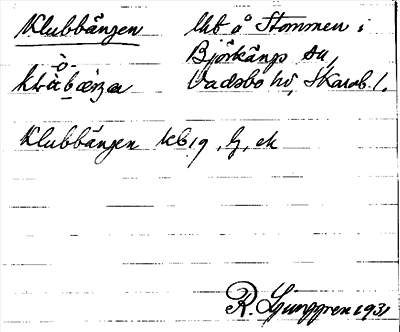 Klubbängen lht å Stommen i
Björkängs sn,
Vadsbo hd, Skarab. l.
Klubbängen kb 19, h, ek
R. Ljunggren 1931